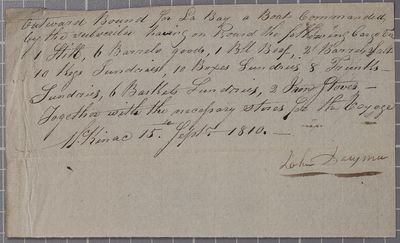 Outward Bound for La Bay a Boat Commanded
by the subscriber having on Board the following Cargo
1 Still, 6 Barrels goods, 1 Bll Beef, 2 Barrels Salt
10 Kegs Sundries, 10 Boxes Sundries 8 Trunks
Sundries, 6 Baskets Sundries, 2 Iron Stoves, -
Together with the necessary stores for the Voyage
McKinac 15 Septr 1810. -
John